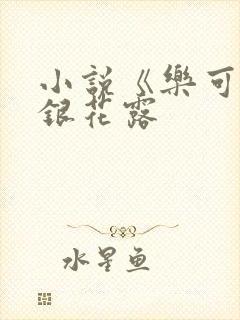 小说《樂可
銀花露
水星鱼